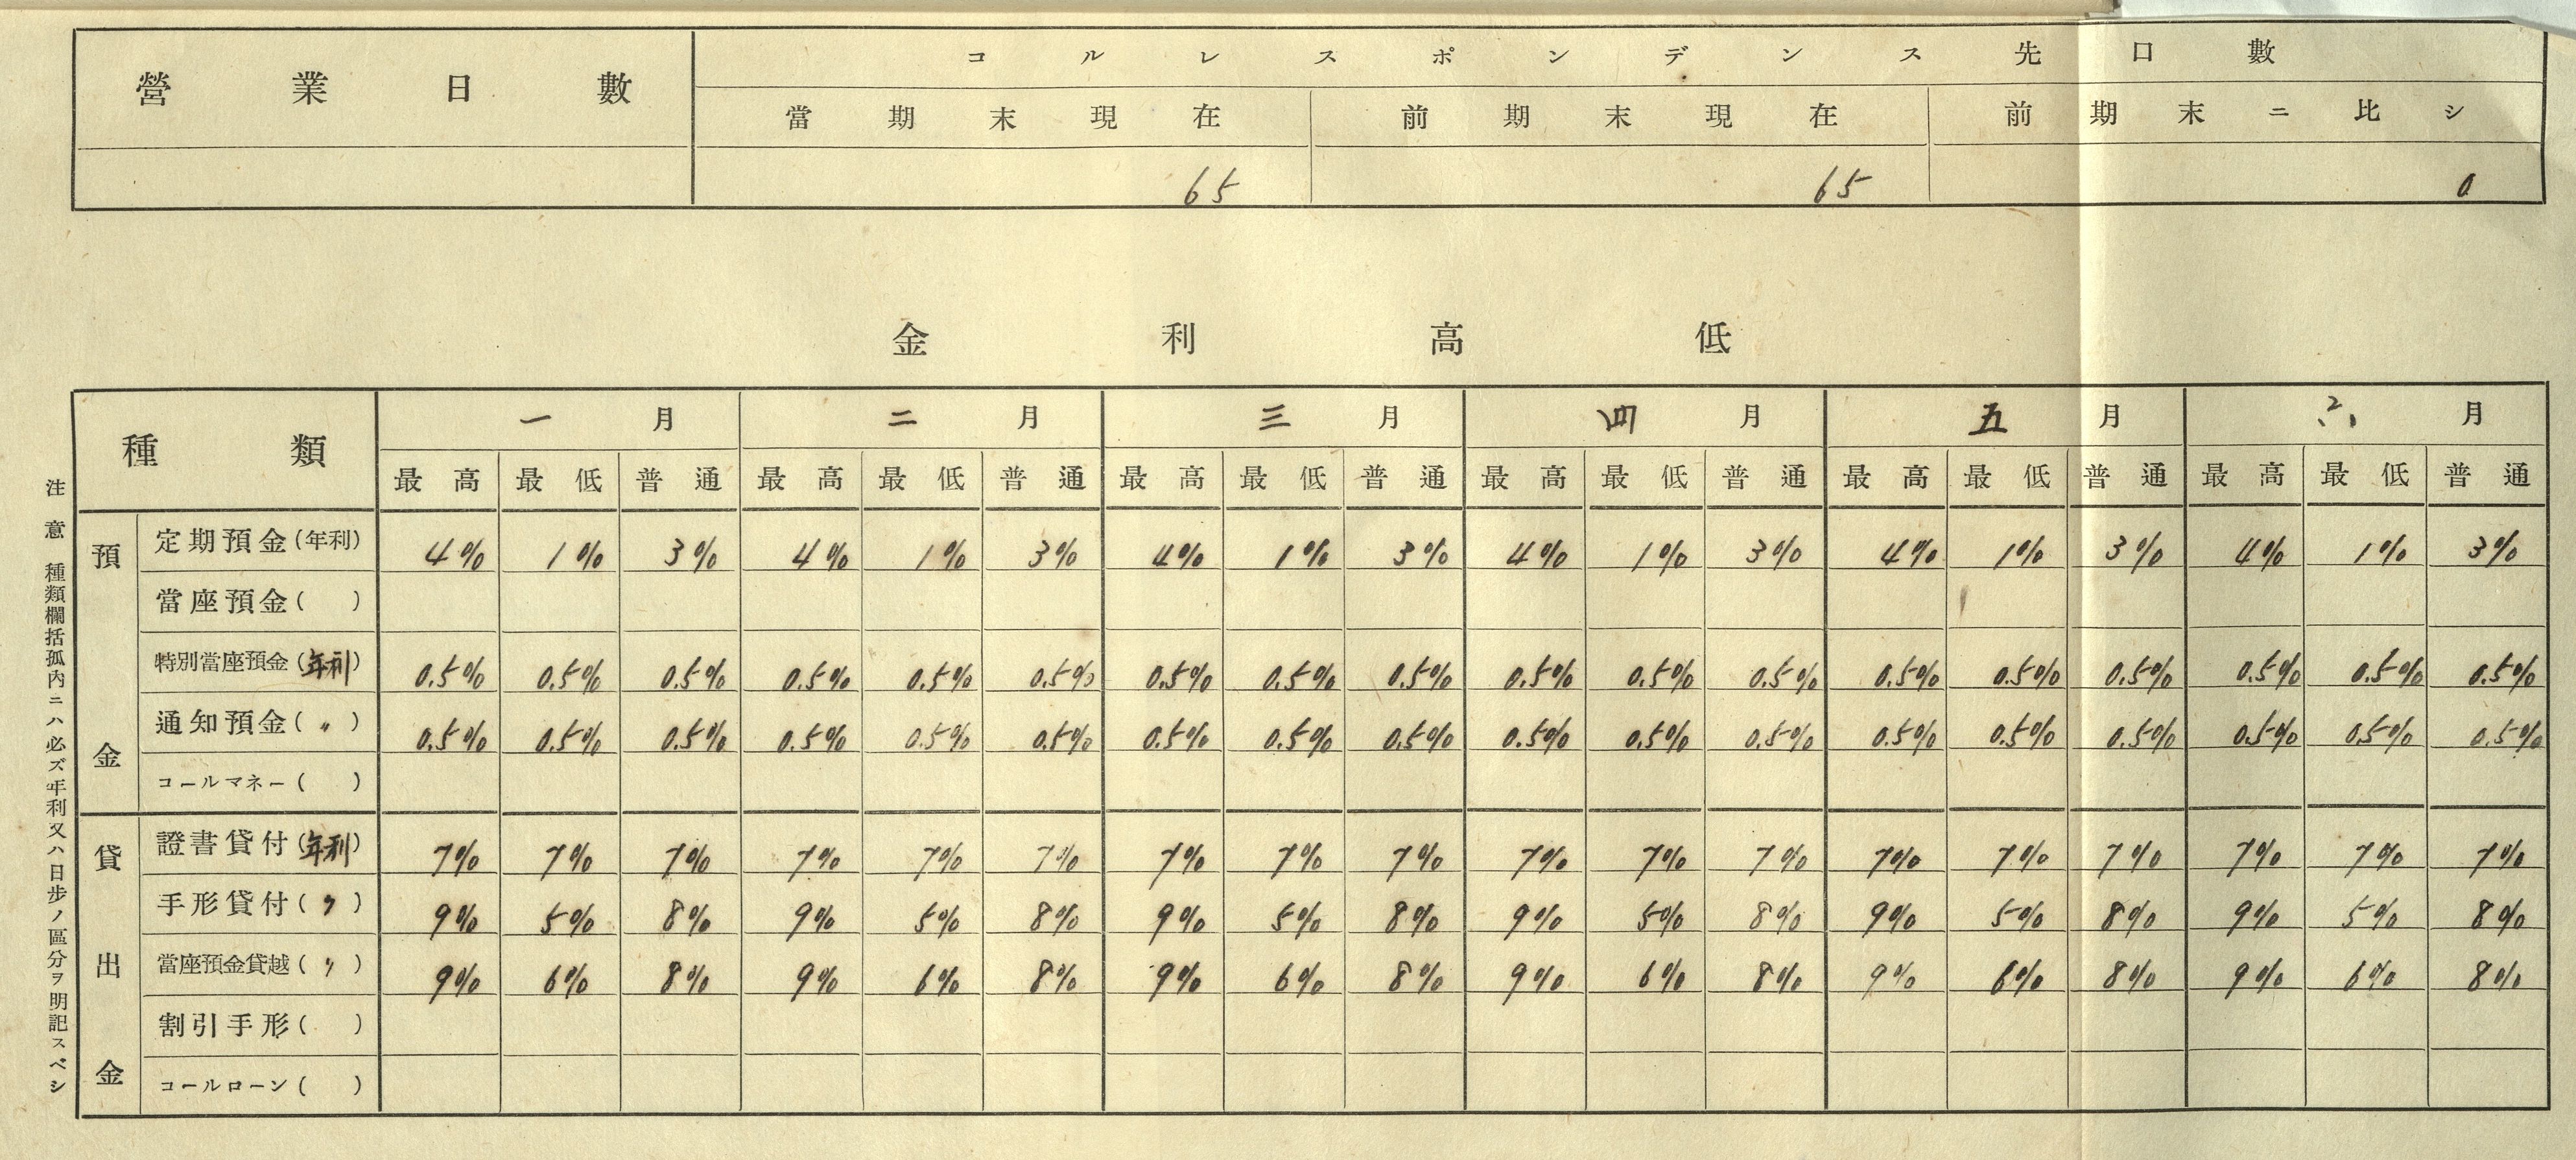 營業日數 コルレスポンデンス先口數
當期末現在 前期末現在 前期末ニ比シ
65 65 0
金利高低
種類 一月 二月 三月 四月 五月 六月
最高 最低 普通 最高 最低 普通 最高 最低 普通 最高 最低 普通 最高 最低 普通 最高 最低 普通
預金
定期預金(年利) 4% 1% 3% 4% 1% 3% 4% 1% 3% 4% 1% 3% 4% 1% 3% 4% 1% 3%
當座預金( )
特別當座預金(年利) 0.5% 0.5% 0.5% 0.5% 0.5% 0.5% 0.5% 0.5% 0.5% 0.5% 0.5% 0.5% 0.5% 0.5% 0.5% 0.5% 0.5% 0.5%
通知預金(〃) 0.5% 0.5% 0.5% 0.5% 0.5% 0.5% 0.5% 0.5% 0.5% 0.5% 0.5% 0.5% 0.5% 0.5% 0.5% 0.5% 0.5% 0.5%
コールマネー( )
貸出金
證書貸付(年利) 7% 7% 7% 7% 7% 7% 7% 7% 7% 7% 7% 7% 7% 7% 7% 7% 7% 7%
手形貸付(〃) 9% 5% 8% 9% 5% 8% 9% 5% 8% 9% 5% 8% 9% 5% 8% 9% 5% 8%
當座預金貸越(〃) 9% 6% 8% 9% 6% 8% 9% 6% 8% 9% 6% 8% 9% 6% 8% 9% 6% 8%
割引手形( )
コールローン( )
注意 種類欄括孤內ニハ必ズ年利又ハ日步ノ區分ヲ明記スベシ